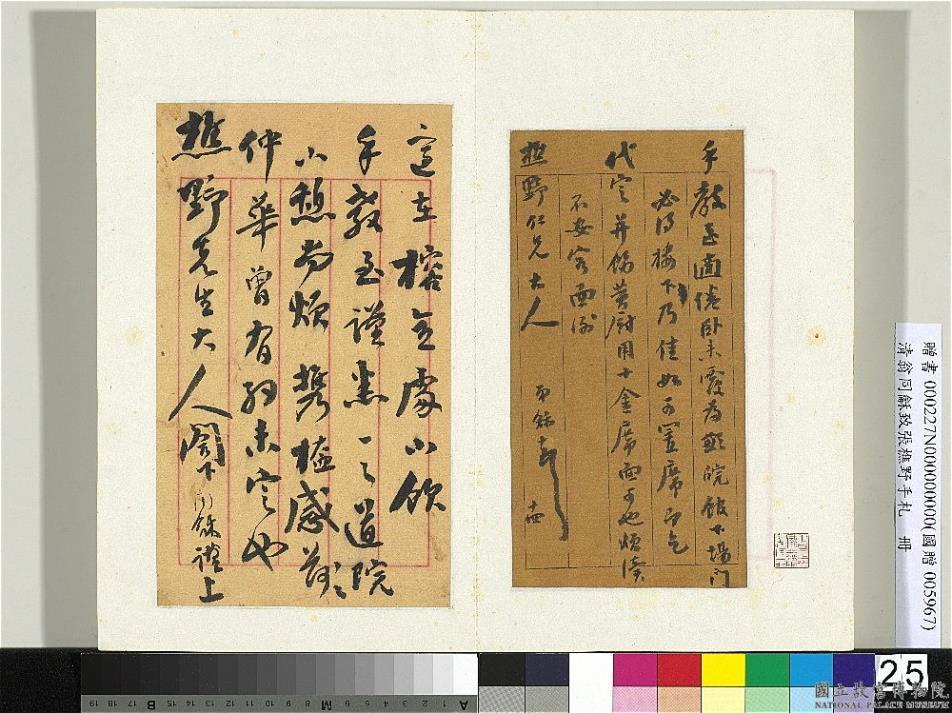 手教至適倦卧未覆為歉皖館下場門
必得樓下乃佳如可置席即乞
代定并飭曹厨用十金席面可也煩瀆
不安容面謝
樵野仁兄大人
弟龢
適在榕舍處小飲
手教至謹悉一之道院
小憩尚煩携榼感荷
仲華曾有約未定也
樵野先生大人閣下
龢謹上
贈書 000227N000000000(國贈 005967)
清翁同龢致張樵野手札 冊
25
國立故宮博物院
NATIONAL PALACE MUSEUM